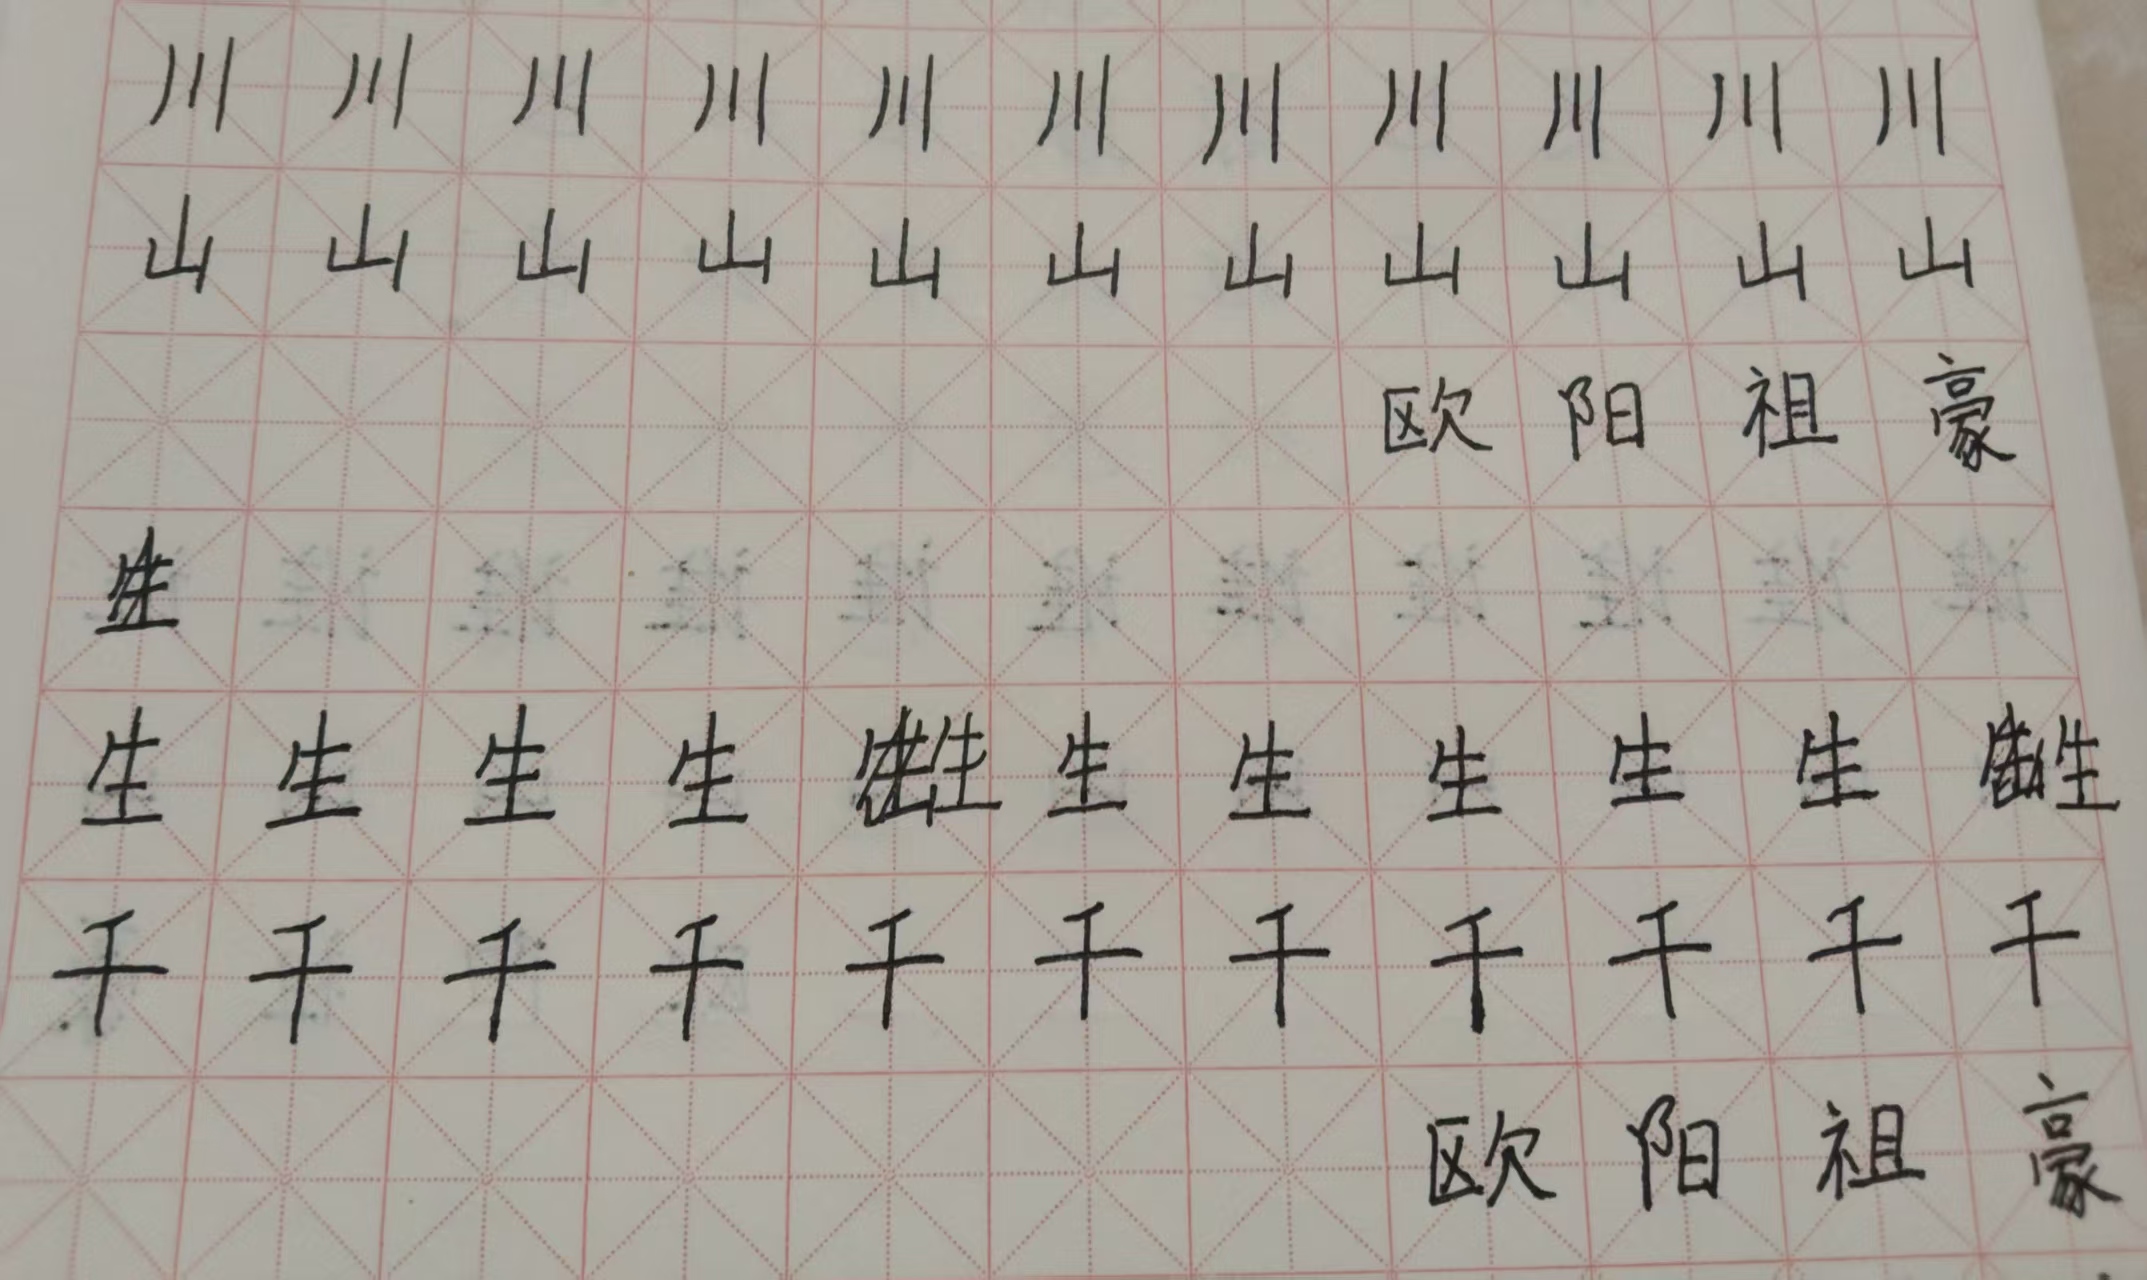 川川川川川川川川川川川
山山山山山山山山山山山
欧阳祖豪
生
生生生生生生生生生生生
千千千千千千千千千千千
欧阳祖豪